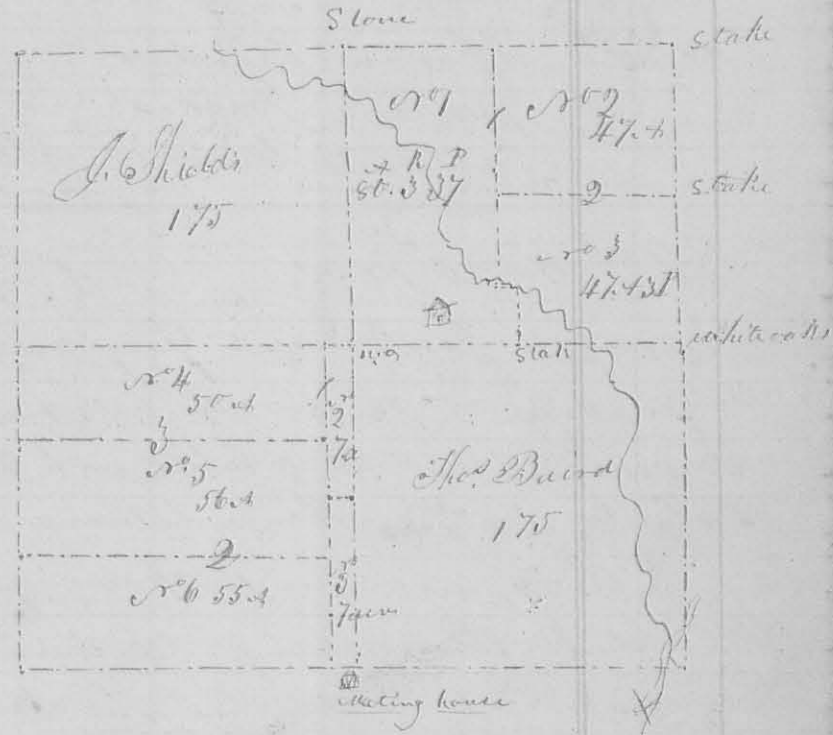 Stone
Stake
No 1
No 2
47 A
J. Shields
175
A R P
80. 3 37
2
Stake
No 3
47 A 31 P
white oaks
Stak
No 4
50 A
3
No 5
56 A
No
2
7 a
Thos Baird
175
2
No 6 55 A
No
3
7 acrs
Meting house